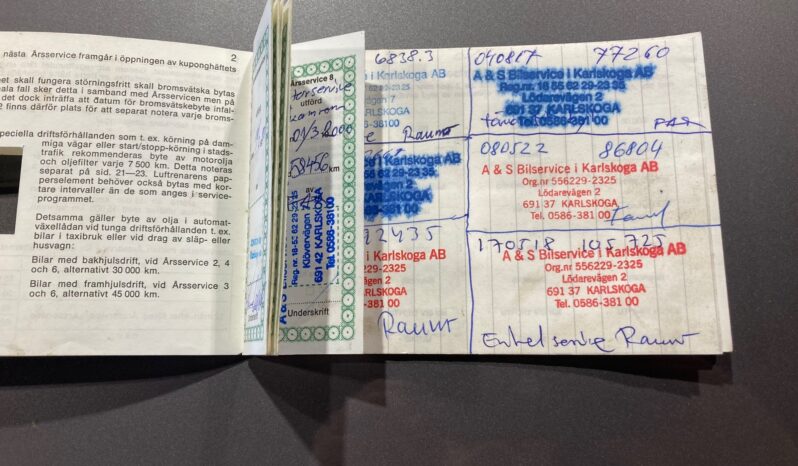 2
nästa Årsservice framgår i öppningen av kuponghäftets
et skall fungera störningsfritt skall bromsvätska bytas
ala fall sker detta i samband med Årsservicen men på
det dock inträffa att datum för bromsvätskebyte infal-
2 finns därför plats för att separat notera varje broms-
peciella driftsförhållanden som t. ex. körning på dam-
miga vägar eller start/stopp-körning i stads-
trafik rekommenderas byte av motorolja
och oljefilter varje 7 500 km. Detta noteras
separat på sid. 21—23. Luftrenarens pap-
perselement behöver också bytas med kor-
tare intervaller än de som anges i service-
programmet.
Detsamma gäller byte av olja i automat-
växellådan vid tunga driftförhållanden t. ex.
bilar i taxibruk eller vid drag av släp- eller
husvagn:
Bilar med bakhjulsdrift, vid Årsservice 2, 4
och 6, alternativt 30 000 km.
Bilar med framhjulsdrift, vid Årsservice 3
och 6, alternativt 45 000 km.
Årsservice 8
utförd
58456 km
av
A & S Bilserv
Reg.nr. 16-55 62 29-23
Klövervägen
691 42 KARLSKOGA
Tel. 0586-381 00
Underskrift
6838.3
i Karlskoga AB
KARLSKOGA
Raunt
i Karlskoga AB
KARLSKOGA
12435
i Karlskoga AB
229-2325
vägen 2
RLSKOGA
-381 00
Raunt
040817 77260
A & S Bilservice i Karlskoga AB
Reg.nr. 16 55 62 29-23 35
Lödarevägen 2
691 37 KARLSKOGA
Tel. 0586-381 00
080522 86804
A & S Bilservice i Karlskoga AB
Org.nr 556229-2325
Lödarevägen 2
691 37 KARLSKOGA
Tel. 0586-381 00
170518 105725
A & S Bilservice i Karlskoga AB
Org.nr 556229-2325
Lödarevägen 2
691 37 KARLSKOGA
Tel. 0586-381 00
Enkel service Raunt